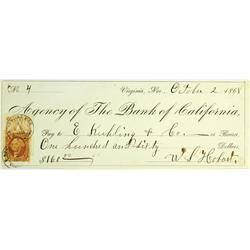 No. 4 Virginia, Nev. October 2 1868
Agency of The Bank of California,
Pay to E. Ruhling & Co. — or Bearer,
One hundred and sixty Dollars,
$160.00 W. S. Hobart